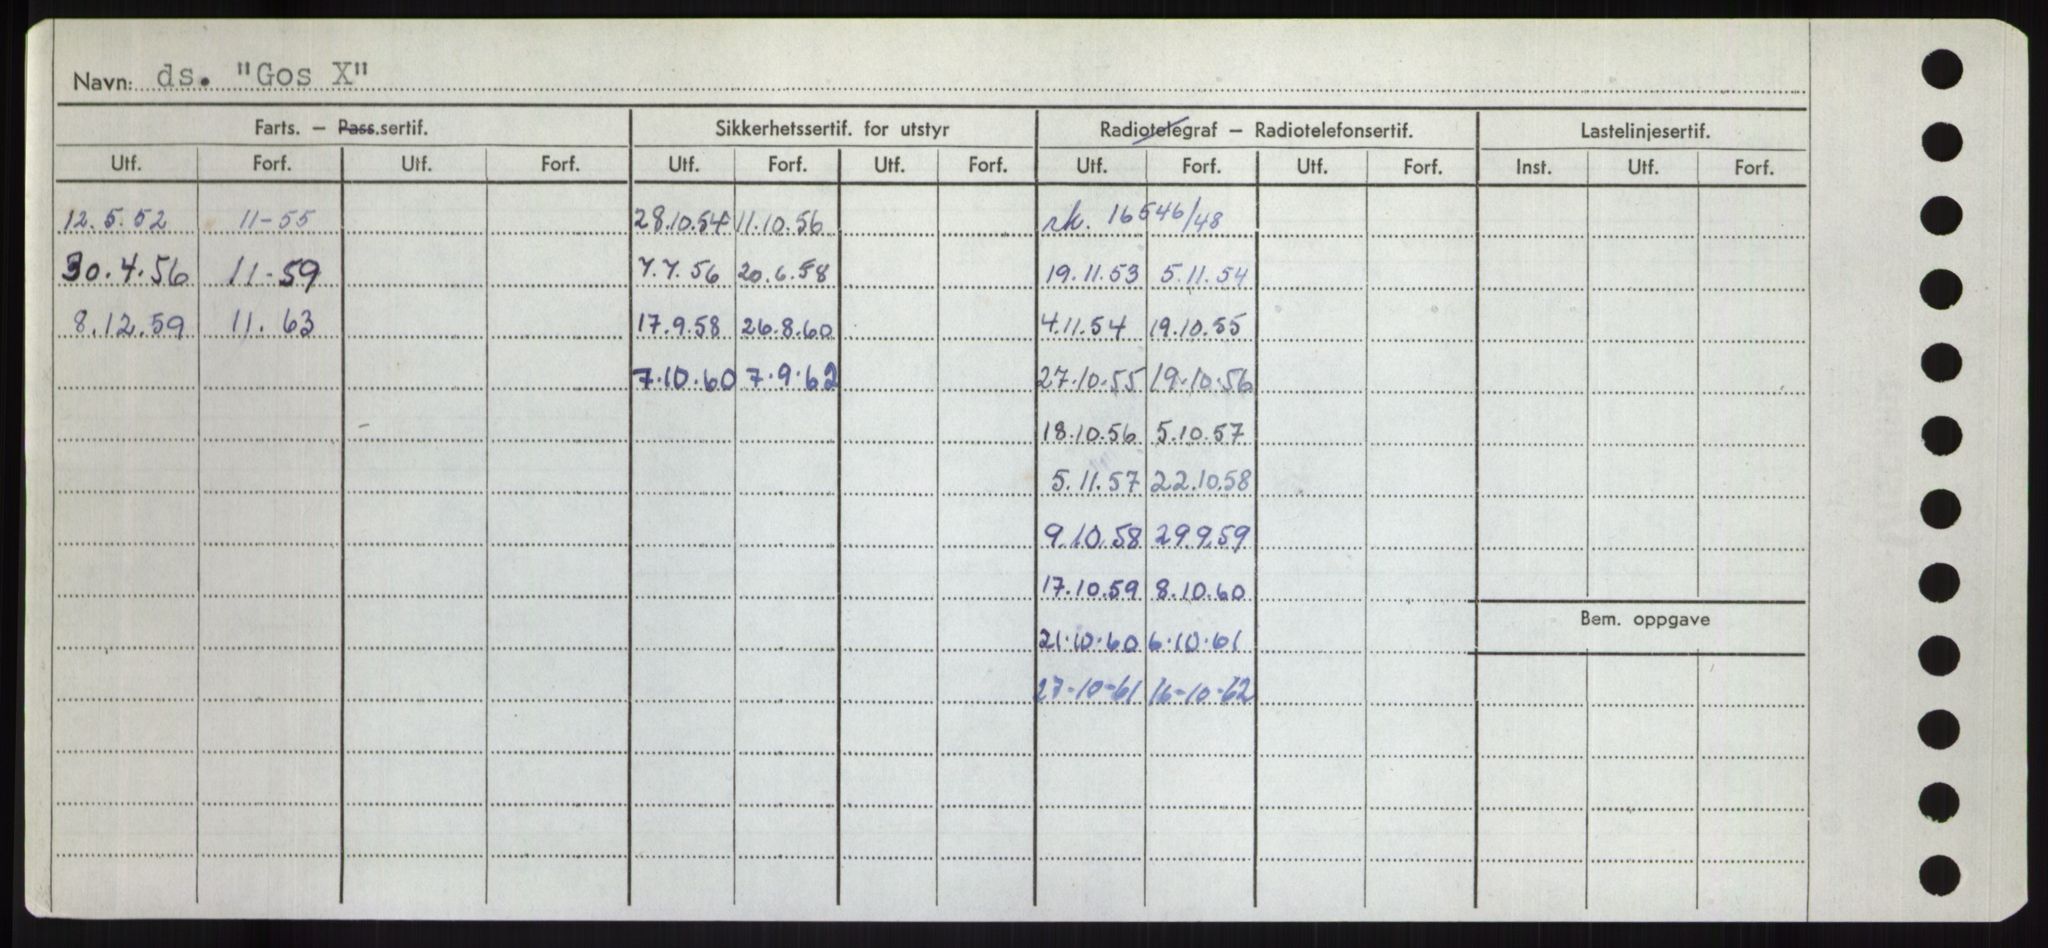 Navn: ds. "Gos X"
Farts. — Pass.sertif. Sikkerhetssertif. for utstyr Radiotelegraf — Radiotelefonsertif. Lastelinjesertif.
Utf. Forf. Utf. Forf. Utf. Forf. Utf. Forf. Utf. Forf. Utf. Forf. Inst. Utf. Forf.
12.5.52 11-55 28.10.54 11.10.56 rk. 16546/48
30.4.56 11-59 7.7.56 20.6.58 19.11.53 5.11.54
8.12.59 11.63 17.9.58 26.8.60 4.11.54 19.10.55
7.10.60 7.9.62 27.10.55 19.10.56
18.10.56 5.10.57
5.11.57 22.10.58
9.10.58 29.9.59
17.10.59 8.10.60
Bem. oppgave
21.10.60 6.10.61
27-10-61 16-10-62